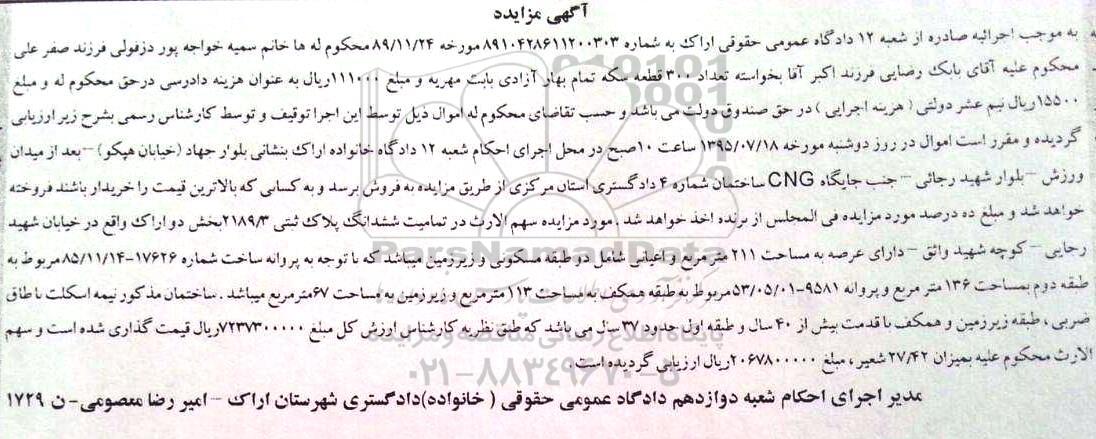 آگهی مزایده
به موجب اجرائیه صادره از شعبه ۱۲ دادگاه عمومی حقوقی اراک به شماره ۸۹۱۰۴۲۸۶۱۱۲۰۰۳۰۳ مورخه ۸۹/۱۱/۲۴ محکوم له ها خانم سمیه خواجه پور دزفولی فرزند صفر علی
محکوم علیه آقای بابک رضایی فرزند اکبر آقا بخواسته تعداد ۳۰۰ قطعه سکه تمام بهار آزادی بابت مهریه و مبلغ ۱۱۱۰۰۰ریال به عنوان هزینه دادرسی درحق محکوم له و مبلغ
۱۵۵۰۰ریال نیم عشر دولتی ( هزینه اجرایی ) در حق صندوق دولت می باشد و حسب تقاضای محکوم له اموال ذیل توسط این اجرا توقیف و توسط کارشناس رسمی بشرح زیر ارزیابی
گردیده و مقرر است اموال در روز دوشنبه مورخه ۱۳۹۵/۰۷/۱۸ ساعت ۱۰صبح در محل اجرای احکام شعبه ۱۲ دادگاه خانواده اراک بنشانی بلوار جهاد (خیابان هپکو) –بعد از میدان
ورزش –بلوار شهید رجائی – جنب جایگاه CNG ساختمان شماره ۴ دادگستری استان مرکزی از طریق مزایده به فروش برسد و به کسانی که بالاترین قیمت را خریدار باشند فروخته
خواهد شد و مبلغ ده درصد مورد مزایده فی المجلس از برنده اخذ خواهد شد . مورد مزایده سهم الارث در تمامیت ششدانگ پلاک ثبتی ۲۱۸۹/۳بخش دو اراک واقع در خیابان شهید
رجایی – کوچه شهید واثق –دارای عرصه به مساحت ۲۱۱ متر مربع و اعیانی شامل دو طبقه مسکونی و زیرزمین میباشد که با توجه به پروانه ساخت شماره ۱۷۶۲۶-۸۵/۱۱/۱۴ مربوط به
طبقه دوم بمساحت ۱۳۶ متر مربع و پروانه ۹۵۸۱-۵۳/۰۵/۰۱ مربوط به طبقه همکف به مساحت ۱۱۳ متر مربع و زیر زمین به مساحت ۶۷متر مربع میباشد . ساختمان مذکور نیمه اسکلت با طاق
ضربی ، طبقه زیرزمین و همکف با قدمت بیش از ۴۰ سال و طبقه اول حدود ۳۷ سال می باشد که طبق نظریه کارشناس ارزش کل مبلغ ۷۲۳۷۳۰۰۰۰۰ریال قیمت گذاری شده است و سهم
الارث محکوم علیه بمیزان ۲۷/۴۲ شعیر ، مبلغ ۲۰۶۷۸۰۰۰۰۰ریال ارزیابی گردیده است
مدیر اجرای احکام شعبه دوازدهم دادگاه عمومی حقوقی ( خانواده)دادگستری شهرستان اراک – امیر رضا معصومی- ن ۱۷۲۹
ParsNamadData
پایگاه اطلاع رسانی مناقصه و مزایده
۰۲۱-۸۸۳۴۹۶۷۰-۵